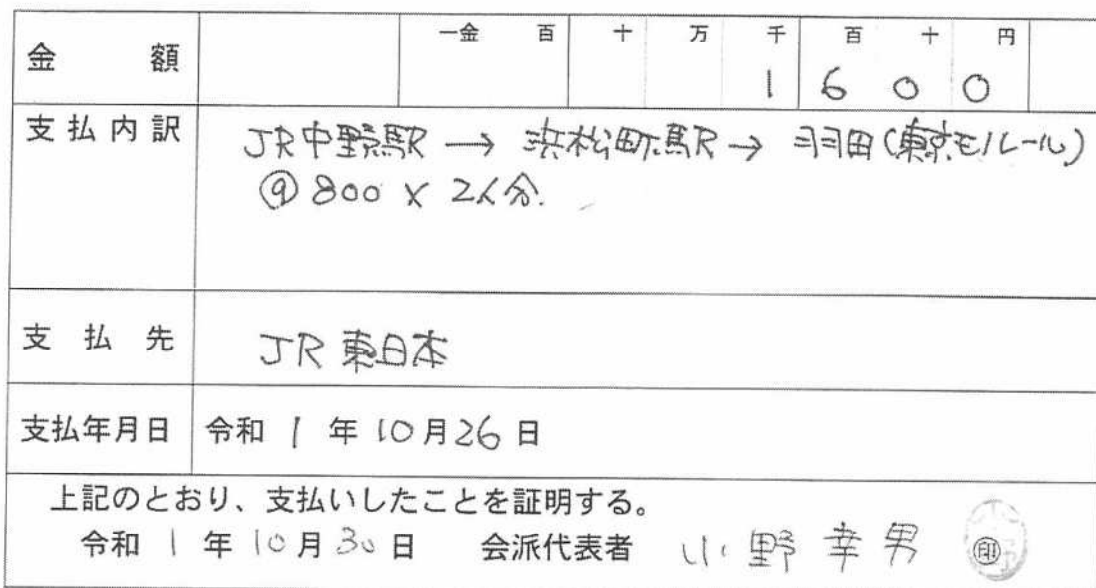 金額 一金 百 十 万 千 百 十 円
1 6 0 0
支払内訳 JR中野駅 → 浜松町駅 → 羽田(東京モノレール)
@ 800 × 2人分.
支払先 JR東日本
支払年月日 令和 1 年 10 月 26 日
上記のとおり、支払いしたことを証明する。
令和 1 年 10 月 30 日 会派代表者 小野 幸男 ㊞